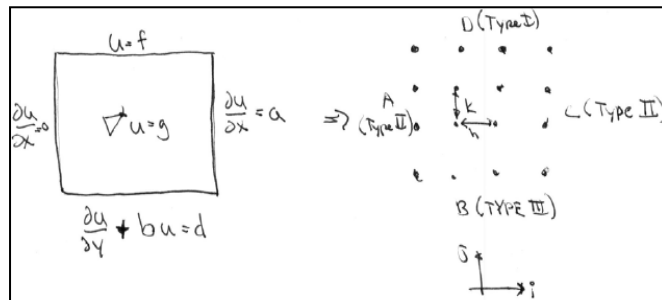 u=f
∂u/∂x=0
∇²u=g
∂u/∂x=a
∂u/∂y + bu=d
⇒
D (Type I)
A
(Type II)
k
h
C (Type II)
B (TYPE III)
J
i